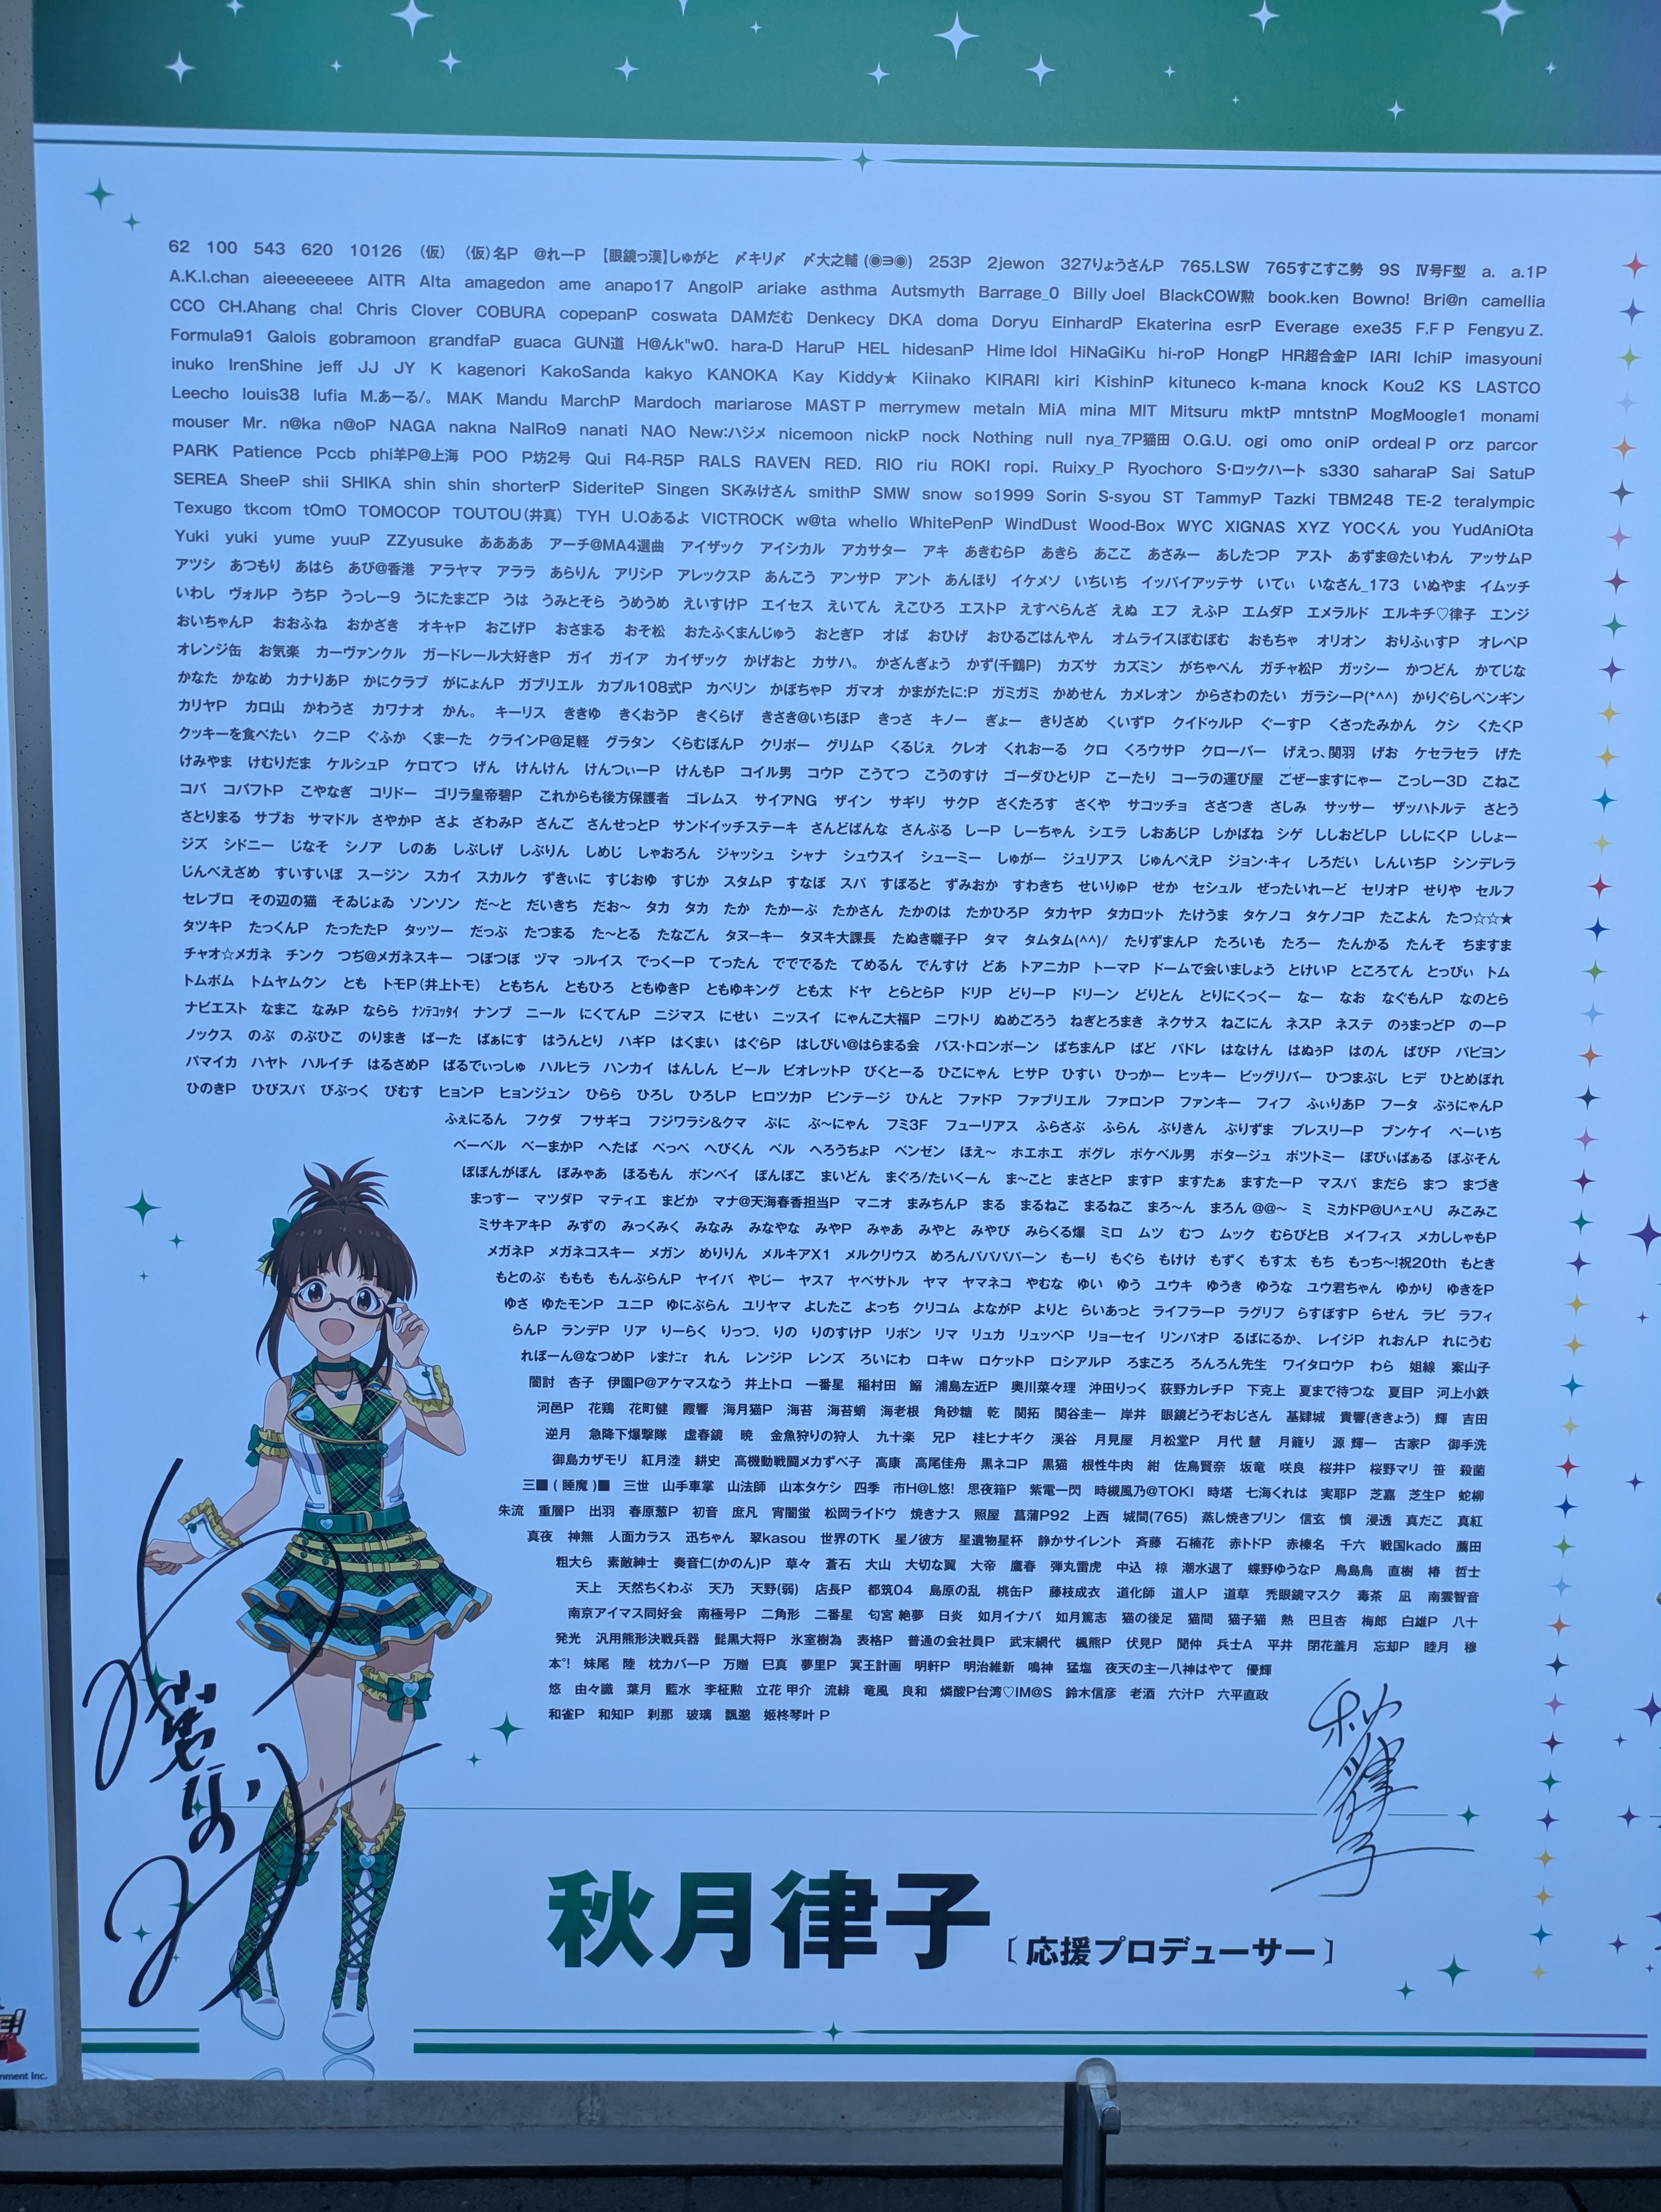 62 100 543 620 10126 (仮) (仮)名P @れーP 【眼鏡っ漢】しゅがと 〆キリ〆 〆大之輔 (◉∋◉) 253P 2jewon 327りょうさんP 765.LSW 765すこすこ勢 9S Ⅳ号F型 a. a.1P
A.K.I.chan aieeeeeeee AITR Alta amagedon ame anapo17 AngolP ariake asthma Autsmyth Barrage_0 Billy Joel BlackCOW勲 book.ken Bowno! Bri@n camellia
CCO CH.Ahang cha! Chris Clover COBURA copepanP coswata DAMだむ Denkecy DKA doma Doryu EinhardP Ekaterina esrP Everage exe35 F.F P Fengyu Z.
Formula91 Galois gobramoon grandfaP guaca GUN道 H@んk"w0. hara-D HaruP HEL hidesanP Hime Idol HiNaGiKu hi-roP HongP HR超合金P IARI IchiP imasyouni
inuko IrenShine jeff JJ JY K kagenori KakoSanda kakyo KANOKA Kay Kiddy★ Kiinako KIRARI kiri KishinP kituneco k-mana knock Kou2 KS LASTCO
Leecho louis38 lufia M.あーる/。 MAK Mandu MarchP Mardoch mariarose MAST P merrymew metaln MiA mina MIT Mitsuru mktP mntstnP MogMoogle1 monami
mouser Mr. n@ka n@oP NAGA nakna NalRo9 nanati NAO New:ハジメ nicemoon nickP nock Nothing null nya_7P猫田 O.G.U. ogi omo oniP ordeal P orz parcor
PARK Patience Pccb phi羊P@上海 POO P坊2号 Qui R4-R5P RALS RAVEN RED. RIO riu ROKI ropi. Ruixy_P Ryochoro S・ロックハート s330 saharaP Sai SatuP
SEREA SheeP shii SHIKA shin shin shorterP SideriteP Singen SKみけさん smithP SMW snow so1999 Sorin S-syou ST TammyP Tazki TBM248 TE-2 teralympic
Texugo tkcom tOmO TOMOCOP TOUTOU(井真) TYH U.Oあるよ VICTROCK w@ta whello WhitePenP WindDust Wood-Box WYC XIGNAS XYZ YOCくん you YudAniOta
Yuki yuki yume yuuP ZZyusuke ああああ アーチ@MA4選曲 アイザック アイシカル アカサター アキ あきむらP あきら あここ あさみー あしたつP アスト あずま@たいわん アッサムP
アツシ あつもり あはら あび@香港 アラヤマ アララ あらりん アリシP アレックスP あんこう アンサP アント あんほり イケメソ いちいち イッパイアッテサ いてぃ いなさん_173 いぬやま イムッチ
いわし ヴォルP うちP うっしー9 うにたまごP うは うみとそら うめうめ えいすけP エイセス えいてん えこひろ エストP えすぺらんざ えぬ エフ えふP エムダP エメラルド エルキチ♡律子 エンジ
おいちゃんP おおふね おかざき オキャP おこげP おさまる おそ松 おたふくまんじゅう おとぎP オば おひげ おひるごはんやん オムライスぽむぽむ おもちゃ オリオン おりふぃすP オレペP
オレンジ缶 お気楽 カーヴァンクル ガードレール大好きP ガイ ガイア カイザック かげおと カサハ。 かざんぎょう かず(千鶴P) カズサ カズミン がちゃぺん ガチャ松P ガッシー かつどん かてじな
かなた かなめ カナりあP かにクラブ がにょんP ガブリエル カブル108式P カベリン かぼちゃP ガマオ かまがたに:P ガミガミ かめせん カメレオン からさわのたい ガラシーP(*^^) かりぐらしペンギン
カリヤP カロ山 かわうさ カワナオ かん。 キーリス ききゆ きくおうP きくらげ きさき@いちほP きっさ キノー ぎょー きりさめ くいずP クイドゥルP ぐーすP くさったみかん クシ くたくP
クッキーを食べたい クニP ぐふか くまーた クラインP@足軽 グラタン くらむぼんP クリボー グリムP くるじぇ クレオ くれおーる クロ くろウサP クローバー げえっ、関羽 げお ケセラセラ げた
けみやま けむりだま ケルシュP ケロてつ げん けんけん けんつぃーP けんもP コイル男 コウP こうてつ こうのすけ ゴーダひとりP こーたり コーラの運び屋 ごぜーますにゃー こっしー3D こねこ
コバ コバフトP こやなぎ コリドー ゴリラ皇帝碧P これからも後方保護者 ゴレムス サイアNG ザイン サギリ サクP さくたろす さくや サコッチョ ささつき さしみ サッサー ザッハトルテ さとう
さとりまる サブお サマドル さやかP さよ ざわみP さんご さんせっとP サンドイッチステーキ さんどばんな さんぶる しーP しーちゃん シエラ しおあじP しかばね シゲ ししおどしP ししにくP ししょー
ジズ シドニー じなそ シノア しのあ しぶしげ しぶりん しめじ しゃおろん ジャッシュ シャナ シュウスイ シューミー しゅがー ジュリアス じゅんべえP ジョン・キィ しろだい しんいちP シンデレラ
じんべえざめ すいすいぼ スージン スカイ スカルク ずきぃに すじおゆ すじか スタムP すなぼ スパ すぽると ずみおか すわきち せいりゅP せか セシュル ぜったいれーど セリオP せりや セルフ
セレブロ その辺の猫 そゐじょゐ ソンソン だ~と だいきち だお~ タカ タカ たか たかーぶ たかさん たかのは たかひろP タカヤP タカロット たけうま タケノコ タケノコP たこよん たつ☆☆★
タツキP たっくんP たったたP タッツー だっぷ たつまる た~とる たなごん タヌーキー タヌキ大課長 たぬき囃子P タマ タムタム(^^)/ たりずまんP たろいも たろー たんかる たんそ ちますま
チャオ☆メガネ チンク つぢ@メガネスキー つぼつぼ ヅマ っルイス でっくーP てったん でででるた てめるん でんすけ どあ トアニカP トーマP ドームで会いましょう とけいP ところてん とっぴぃ トム
トムボム トムヤムクン とも トモP(井上トモ) ともちん ともひろ ともゆきP ともゆキング とも太 ドヤ とらとらP ドリP どりーP ドリーン どりとん とりにくっくー なー なお なぐもんP なのとら
ナビエスト なまこ なみP ならら ナンテコッタイ ナンブ ニール にくてんP ニジマス にせい ニッスイ にゃんこ大福P ニワトリ ぬめごろう ねぎとろまき ネクサス ねこにん ネスP ネステ のぅまっどP のーP
ノックス のぶ のぶひこ のりまき ばーた ばぁにす はうんとり ハギP はくまい はぐらP はしびい@はらまる会 バス・トロンボーン ばちまんP ばど バドレ はなけん はぬぅP はのん ばびP パピヨン
パマイカ ハヤト ハルイチ はるさめP ばるでぃっしゅ ハルヒラ ハンカイ はんしん ビール ビオレットP びくとーる ひこにゃん ヒサP ひすい ひっかー ヒッキー ビッグリバー ひつまぶし ヒデ ひとめぼれ
ひのきP ひびスパ びぶっく びむす ヒョンP ヒョンジュン ひらら ひろし ひろしP ヒロツカP ビンテージ ひんと ファドP ファブリエル ファロンP ファンキー フィフ ふぃりあP フータ ぷぅにゃんP
ふぇにるん フクダ フサギコ フジワラシ&クマ ぷに ぶ~にゃん フミ3F フューリアス ふらさぶ ふらん ぶりきん ぶりずま プレスリーP ブンケイ べーいち
べーベル べーまかP へたば べっぺ へびくん ベル へろうちょP ベンゼン ほえ~ ホエホエ ボグレ ポケベル男 ポタージュ ポツトミー ぽぴぃばぁる ぽぷそん
ぽぽんがぽん ぽみゃあ ほるもん ボンベイ ぽんぽこ まいどん まぐろ/たいくーん ま~こと まさとP ますP ますたぁ ますたーP マスパ まだら まつ まづき
まっすー マツダP マティエ まどか マナ@天海春香担当P マニオ まみちんP まる まるねこ まるねこ まろ~ん まろん @@~ ミ ミカドP@U^ェ^U みこみこ
ミサキアキP みずの みっくみく みなみ みなやな みやP みゃあ みやと みやび みらくる爆 ミロ ムツ むつ ムック むらびとB メイフィス メカししゃもP
メガネP メガネコスキー メガン めりりん メルキアX1 メルクリウス めろんパパパパーン もーり もぐら もけけ もずく もす太 もち もっち~!祝20th もとき
もとのぶ ももも もんぶらんP ヤイバ やじー ヤス7 ヤベサトル ヤマ ヤマネコ やむな ゆい ゆう ユウキ ゆうき ゆうな ユウ君ちゃん ゆかり ゆきをP
ゆさ ゆたモンP ユニP ゆにぶらん ユリヤマ よしたこ よっち クリコム よながP よりと らいあっと ライフラーP ラグリフ らすぼすP らせん ラビ ラフィ
らんP ランデP リア りーらく りっつ. りの りのすけP リボン リマ リュカ リュッペP リョーセイ リンバオP るばにるか、 レイジP れおんP れにうむ
れぼーん@なつめP れん レンジP レンズ ろいにわ ロキw ロケットP ロシアルP ろまころ ろんろん先生 ワイタロウP わら 姐線 案山子
闇討 杏子 伊園P@アケマスなう 井上トロ 一番星 稲村田 鰯 浦島左近P 奥川菜々理 沖田りっく 荻野カレチP 下克上 夏まで待つな 夏目P 河上小鉄
河邑P 花鶏 花町健 霞響 海月猫P 海苔 海苔蛸 海老根 角砂糖 乾 関拓 関谷圭一 岸井 眼鏡どうぞおじさん 基肄城 貴響(ききょう) 輝 吉田
逆月 急降下爆撃隊 虚春鏡 暁 金魚狩りの狩人 九十楽 兄P 桂ヒナギク 渓谷 月見屋 月松堂P 月代 慧 月籠り 源 輝一 古家P 御手洗
御島カザモリ 紅月淕 耕史 高機動戦闘メカずべ子 高康 高尾佳舟 黒ネコP 黒猫 根性牛肉 紺 佐鳥賢奈 坂竜 咲良 桜井P 桜野マリ 笹 殺菌
三■(睡魔)■ 三世 山手車掌 山法師 山本タケシ 四季 市H@L悠! 思夜箱P 紫電一閃 時槻風乃@TOKI 時塔 七海くれは 実耶P 芝嘉 芝生P 蛇柳
朱流 重層P 出羽 春原葱P 初音 庶凡 宵闇蛍 松岡ライドウ 焼きナス 照屋 菖蒲P92 上西 城間(765) 蒸し焼きプリン 信玄 慎 浸透 真だこ 真紅
真夜 神無 人面カラス 迅ちゃん 翠kasou 世界のTK 星ノ彼方 星遺物星杯 静かサイレント 斉藤 石楠花 赤トドP 赤榛名 千六 戦国kado 薦田
粗大ら 素敵紳士 奏音仁(かのん)P 草々 蒼石 大山 大切な翼 大帝 鷹春 弾丸雷虎 中込 椋 潮水退了 蝶野ゆうなP 鳥島鳥 直樹 椿 哲士
天上 天然ちくわぶ 天乃 天野(弱) 店長P 都筑04 島原の乱 桃缶P 藤枝成衣 道化師 道人P 道草 禿眼鏡マスク 毒茶 凪 南雲智音
南京アイマス同好会 南極号P 二角形 二番星 匂宮 絶夢 日炎 如月イナバ 如月篤志 猫の後足 猫間 猫子猫 熱 巴旦杏 梅郎 白雄P 八十
発光 汎用熊形決戦兵器 髭黒大将P 氷室樹為 表格P 普通の会社員P 武末綱代 楓熊P 伏見P 聞仲 兵士A 平井 閉花羞月 忘却P 睦月 穆
本°! 妹尾 陸 枕カバーP 万贈 巳真 夢里P 冥王計画 明軒P 明治維新 鳴神 猛塩 夜天の主一八神はやて 優輝
悠 由々識 葉月 藍水 李柾勲 立花 甲介 流緋 竜風 良和 燐酸P台湾♡IM@S 鈴木信彦 老酒 六汁P 六平直政
和雀P 和知P 刹那 玻璃 飄邈 姫柊琴叶 P
秋月律子
秋月律子〔応援プロデューサー〕
nment Inc.